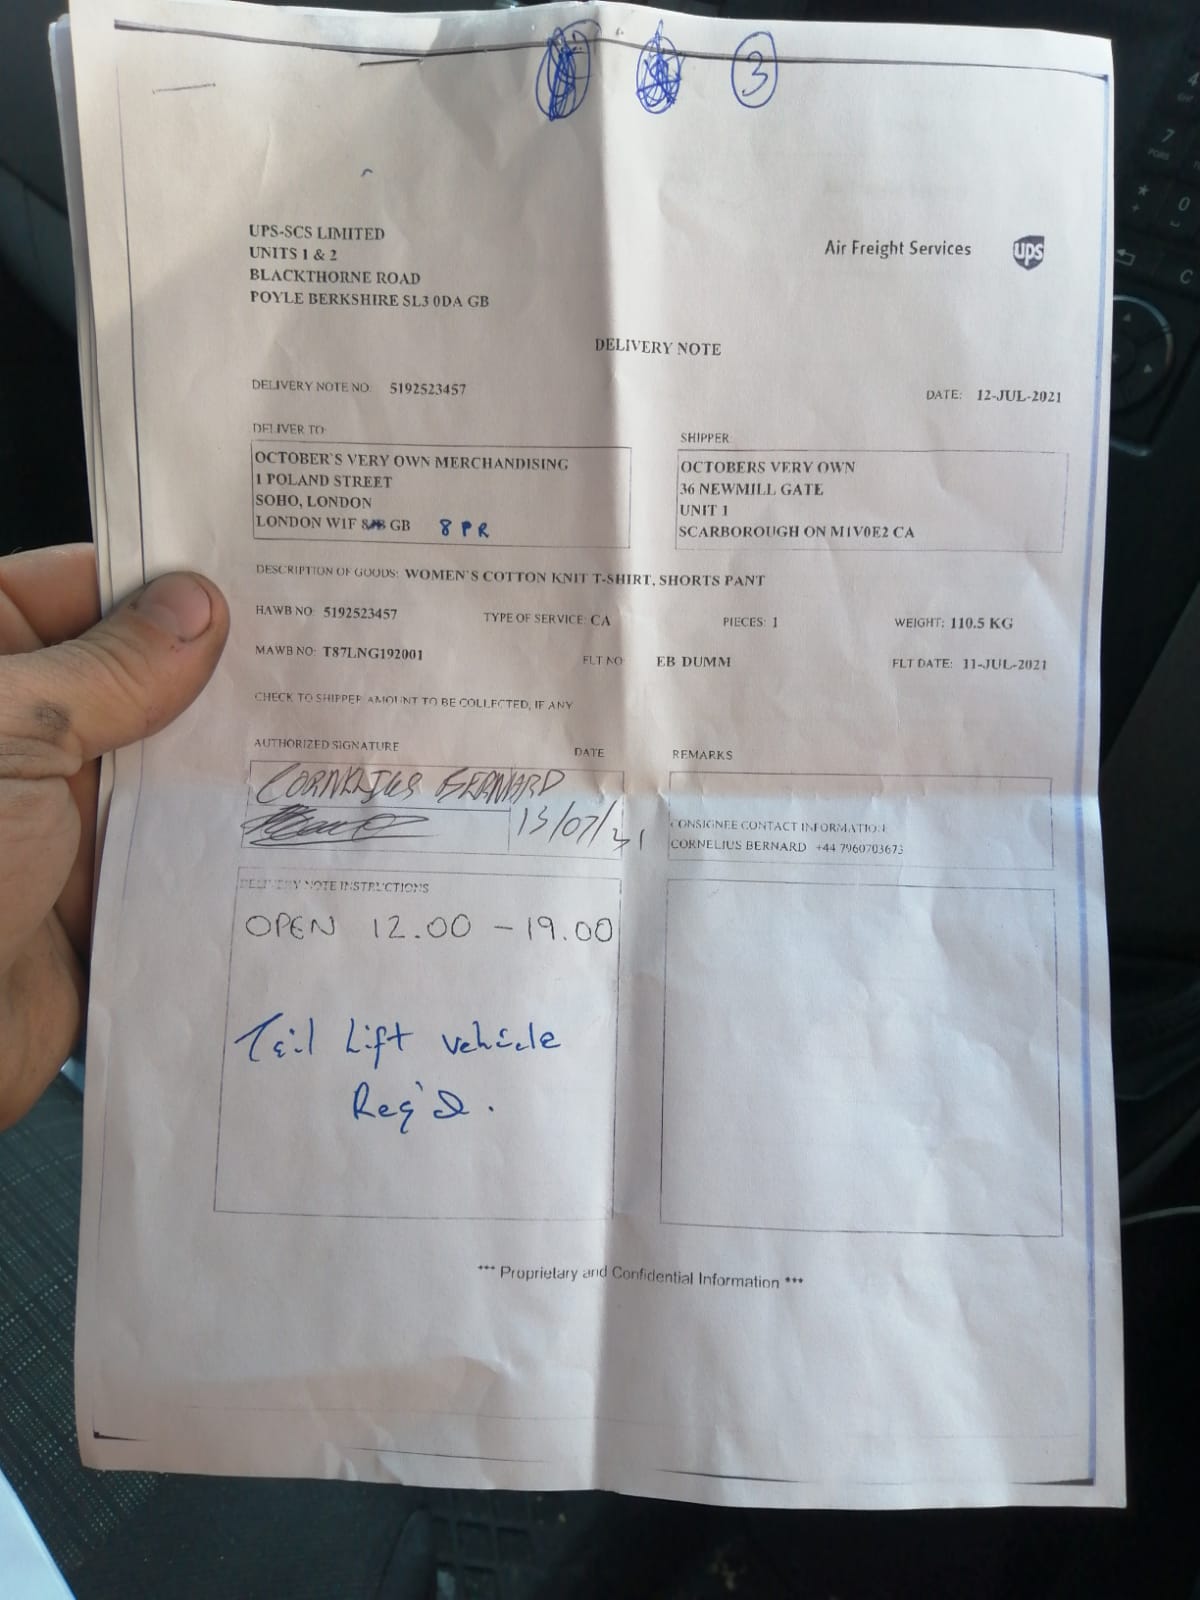 3
UPS-SCS LIMITED
UNITS 1 & 2
BLACKTHORNE ROAD
POYLE BERKSHIRE SL3 0DA GB
Air Freight Services ups
DELIVERY NOTE
DELIVERY NOTE NO: 5192523457
DATE: 12-JUL-2021
DELIVER TO:
OCTOBER'S VERY OWN MERCHANDISING
1 POLAND STREET
SOHO, LONDON
LONDON W1F GB 8PR
SHIPPER:
OCTOBERS VERY OWN
36 NEWMILL GATE
UNIT 1
SCARBOROUGH ON M1V0E2 CA
DESCRIPTION OF GOODS: WOMEN'S COTTON KNIT T-SHIRT, SHORTS PANT
HAWB NO: 5192523457 TYPE OF SERVICE: CA PIECES: 1 WEIGHT: 110.5 KG
MAWB NO: T87LNG192001 FLT NO: EB DUMM FLT DATE: 11-JUL-2021
CHECK TO SHIPPER AMOUNT TO BE COLLECTED, IF ANY
AUTHORIZED SIGNATURE DATE
CORNELIUS BERNARD
13/07/21
REMARKS
CONSIGNEE CONTACT INFORMATION:
CORNELIUS BERNARD +44 7960703673
DELIVERY NOTE INSTRUCTIONS
OPEN 12.00 - 19.00
Tail Lift vehicle
Req'd.
*** Proprietary and Confidential Information ***